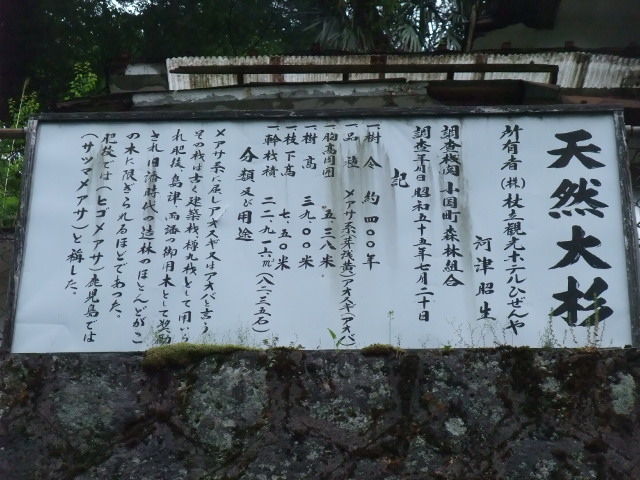 天然大杉
所有者(株)杖立観光ホテルひぜんや
河津昭生
調査機関 小国町森林組合
調査年月日 昭和五十五年七月二十日
記
一樹令 約四〇〇年
一品種 メアサ系(芽浅黄)アオスギ(アオバ)
一胸高周囲 五.三八米
一樹高 三九.〇〇米
一枝下高 七.五〇米
一幹材積 二二.九一六m³(八二.三五石)
分類及び用途
メアサ系に属しアオスギ又はアオバと言う
その材は堅く建築材樽丸材として用いら
れ肥後、島津、両藩の御用木として奨励
され旧藩時代の造林のほとんどがこ
の木に限ぎられるほどであった。
肥後では(ヒゴメアサ)鹿児島では
(サツマメアサ)と称した。